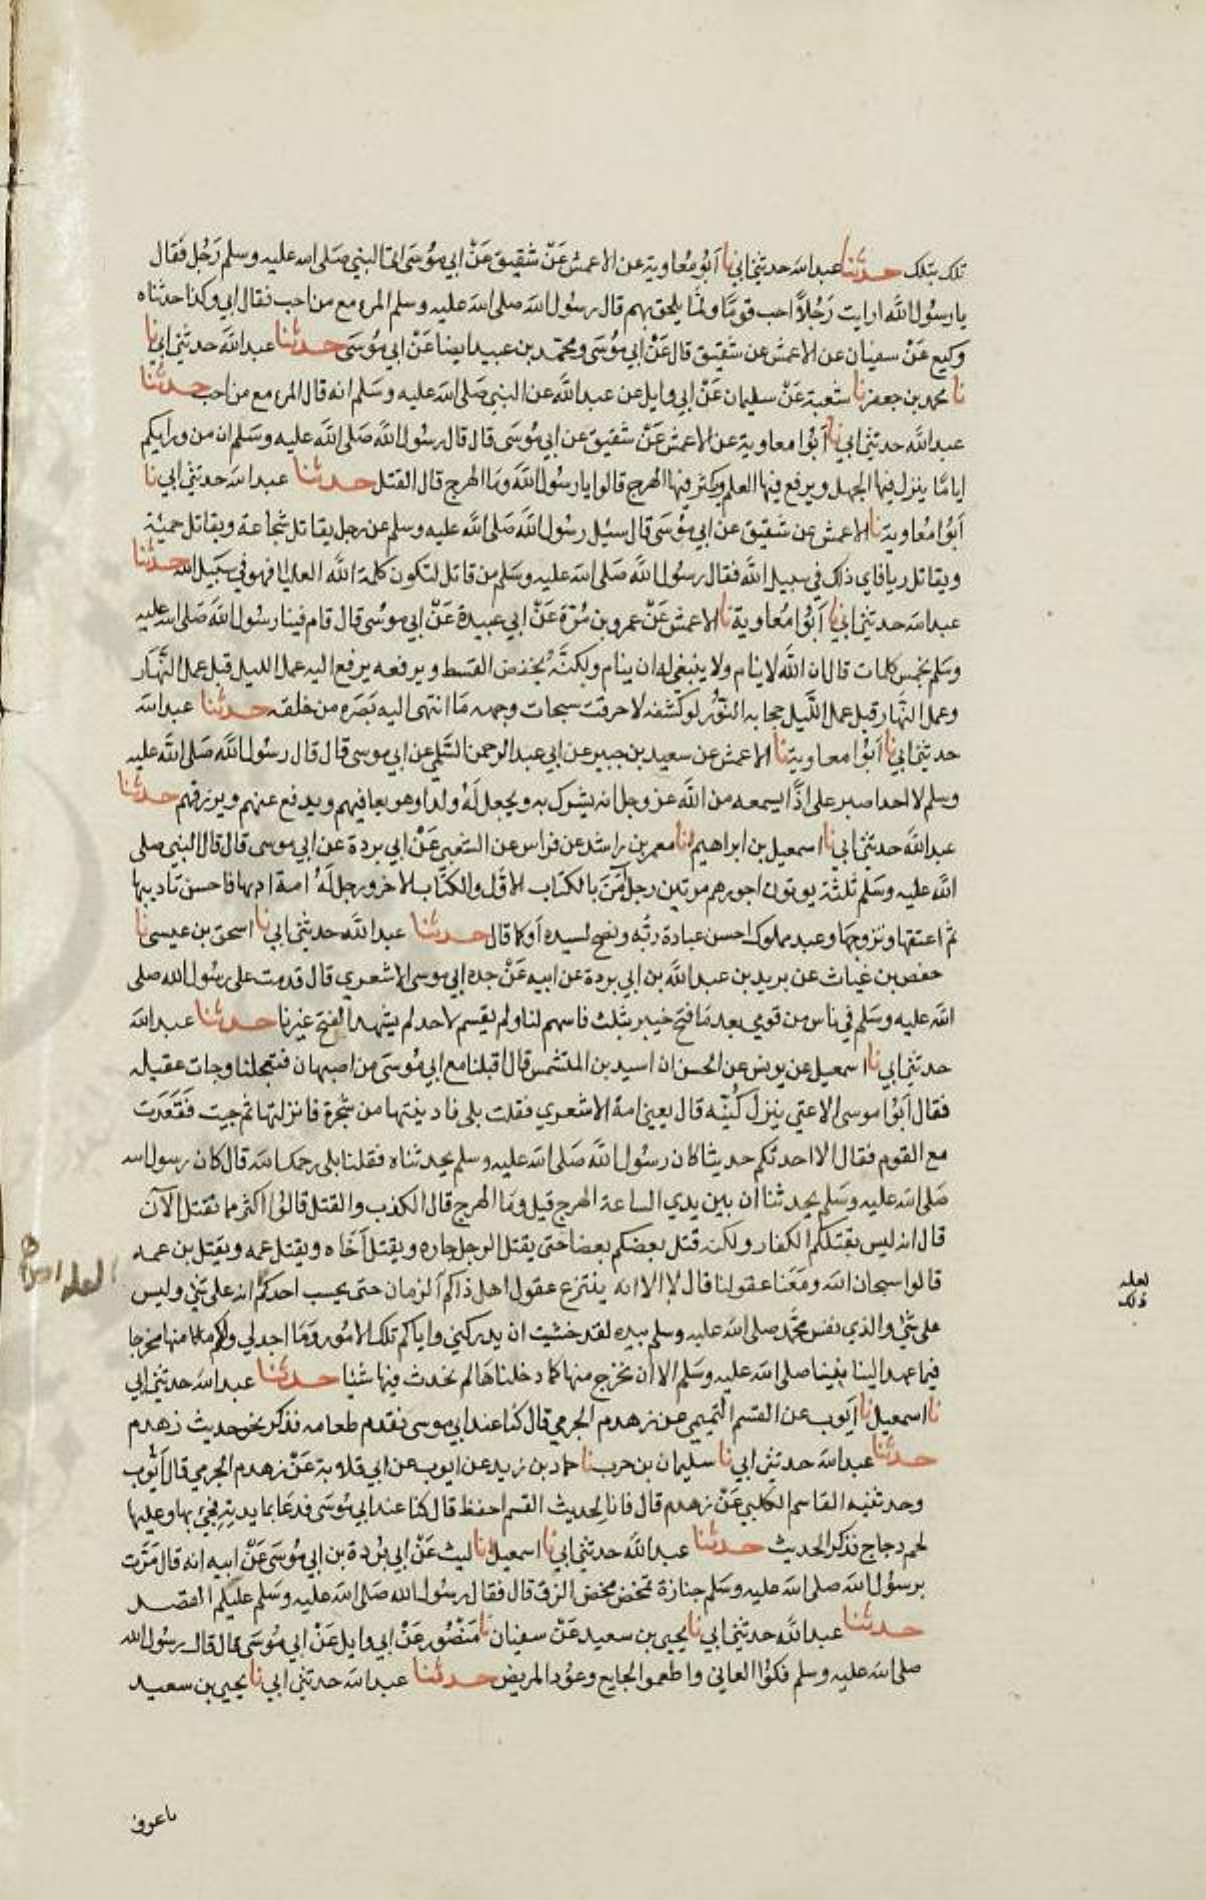 تلك بتلك حدثنا عبد الله حدثني ابي نا ابو معاوية عن الاعمش عن شقيق عن ابي موسى اتى النبي صلى الله عليه وسلم رجل فقال
يا رسول الله ارايت رجلا احب قوما ولما يلحق بهم قال رسول الله صلى الله عليه وسلم المرء مع من احب فقال ابي وكذا حدثناه
وكيع عن سفيان عن الاعمش عن شقيق قال عن ابي موسى ومحمد بن عبيد ايضا عن ابي موسى حدثنا عبد الله حدثني ابي نا
نا محمد بن جعفر نا شعبة عن سليمان عن ابي وايل عن عبد الله عن النبي صلى الله عليه وسلم انه قال المرء مع من احب حدثنا
عبد الله حدثني ابي نا ابو معاوية عن الاعمش عن شقيق عن ابي موسى قال قال رسول الله صلى الله عليه وسلم ان من ورايكم
اياما ينزل فيها الجهل ويرفع فيها العلم ويكثر فيها الهرج قالوا يا رسول الله وما الهرج قال القتل حدثنا عبد الله حدثني ابي نا
ابو معاوية نا الاعمش عن شقيق عن ابي موسى قال سيل رسول الله صلى الله عليه وسلم عن رجل يقاتل شجاعة ويقاتل حمية
ويقاتل ريا فاي ذلك في سبيل الله فقال رسول الله صلى الله عليه وسلم من قاتل لتكون كلمة الله العليا فهو في سبيل الله حدثنا
عبد الله حدثني ابي نا ابو معاوية نا الاعمش عن عمرو بن مرة عن ابي عبيدة عن ابي موسى قال قام فينا رسول الله صلى الله عليه
وسلم بخمس كلمات قال ان الله لا ينام ولا ينبغي له ان ينام ولكنه يخفض القسط ويرفعه يرفع اليه عمل الليل قبل عمل النهار
وعمل النهار قبل عمل الليل حجابه النور لو كشفه لاحرقت سبحات وجهه ما انتهى اليه بصره من خلقه حدثنا عبد الله
حدثني ابي نا ابو معاوية نا الاعمش عن سعيد بن جبير عن ابي عبد الرحمن السلمي عن ابي موسى قال قال رسول الله صلى الله عليه
وسلم لا احد اصبر على اذا يسمعه من الله عز وجل انه يشرك به ويجعل له ولد وهو يعافيهم ويدفع عنهم ويرزقهم حدثنا
عبد الله حدثني ابي نا اسمعيل بن ابراهيم انا معمر بن راشد عن فراس عن الشعبي عن ابي بردة عن ابي موسى قال قال النبي صلى
الله عليه وسلم ثلثة يوتون اجورهم مرتين رجل آمن بالكتاب الاول والكتاب الاخر ورجل له امة ادبها فاحسن تاديبها
ثم اعتقها وتزوجها وعبد مملوك احسن عبادة ربه ونصح لسيده او كما قال حدثنا عبد الله حدثني ابي نا اسحق بن عيسى نا
حفص بن غياث عن بريد بن عبد الله بن ابي بردة عن ابيه عن جده ابي موسى الاشعري قال قدمت على رسول الله صلى
الله عليه وسلم في ناس من قومي بعد ما فتح خيبر بثلث فاسهم لنا ولم يقسم لاحد لم يشهد الفتح غيرنا حدثنا عبد الله
حدثني ابي نا اسمعيل عن يونس عن الحسن ان اسيد بن المتشمس قال اقبلنا مع ابي موسى من اصبهان فتعجلنا وجات عقيلة
فقال ابو موسى الا فتى ينزل كنته قال يعني امة الاشعري فقلت بلى فادنيتها من شجرة فانزلتها ثم جيت فقعدت
مع القوم فقال الا احدثكم حديثا كان رسول الله صلى الله عليه وسلم يحدثناه فقلنا بلى رحمك الله قال كان رسول الله
صلى الله عليه وسلم يحدثنا ان بين يدي الساعة الهرج قيل وما الهرج قال الكذب والقتل قالوا اكثر مما نقتل الآن
قال انه ليس بقتلكم الكفار ولكنه قتل بعضكم بعضا حتى يقتل الرجل جاره ويقتل اخاه ويقتل عمه ويقتل بن عمه
قالوا سبحان الله ومعنا عقولنا قال لا الا انه ينتزع عقول اهل ذاكم الزمان حتى يحسب احدكم انه على شي وليس
على شي والذي نفس محمد صلى الله عليه وسلم بيده لقد خشيت ان يدركني واياكم تلك الامور وما اجد لي ولكم منها مخرجا
فيما عهد الينا نبينا صلى الله عليه وسلم الا ان نخرج منها كما دخلناها لم نحدث فيها شيا حدثنا عبد الله حدثني ابي
نا اسمعيل نا ايوب عن القسم التميمي عن زهدم الجرمي قال كنا عند ابي موسى فقدم طعامه فذكر نحو حديث زهدم
حدثنا عبد الله حدثني ابي نا سليمان بن حرب نا حماد بن زيد عن ايوب عن ابي قلابة عن زهدم الجرمي قال ايوب
وحدثنيه القاسم الكلبي عن زهدم قال فانا لحديث القسم احفظ قال كنا عند ابي موسى فدعا بمايدته فجيء بها وعليها
لحم دجاج فذكر الحديث حدثنا عبد الله حدثني ابي نا اسمعيل انا ليث عن ابي بردة بن ابي موسى عن ابيه انه قال مرت
برسول الله صلى الله عليه وسلم جنازة تمخض مخض الزق قال فقال رسول الله صلى الله عليه وسلم عليكم القصد
حدثنا عبد الله حدثني ابي نا يحيى بن سعيد عن سفيان نا منصور عن ابي وايل عن ابي موسى قال قال رسول الله
صلى الله عليه وسلم فكوا العاني واطعموا الجايع وعودا المريض حدثنا عبد الله حدثني ابي نا يحيى بن سعيد
لعله
ذلك